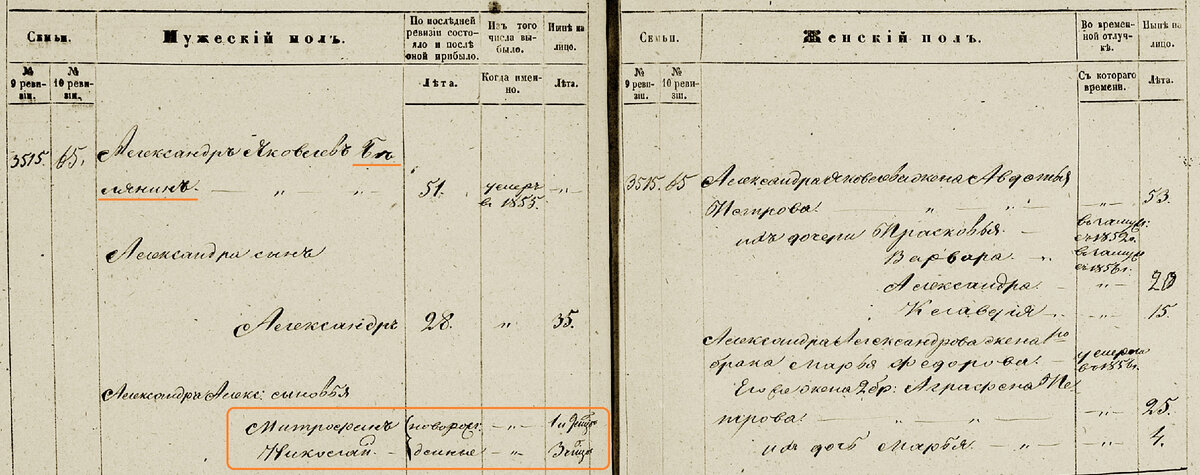 Семьи.
Мужескій полъ.
По послѣдней ревизіи состояло и послѣ оной прибыло.
Изъ того числа выбыло.
Нынѣ на лицо.
№ 9 ревизіи.
№ 10 ревизіи.
Лѣта.
Когда именно.
Лѣта.
3515. 65. Александръ Яковлевъ
лянинъ. — „ „ 51. умеръ „
въ 1855.
Александра сынъ
Александръ 28. „ 35.
Александра Алекс: сыновья
Митрофанъ новорож- „ 1 и
Николай денные „ 3
Семьи.
Женскій полъ.
Во временной отлучкѣ.
Нынѣ на лицо.
№ 9 ревизіи.
№ 10 ревизіи.
Съ котораго времени.
Лѣта.
3515. 65 Александра Яковлева жена Авдотья
Петрова. — „ „ „ 53.
ихъ дочери Прасковья.
Варвара.
Александра. „ 20
Клавдія „ 15.
Александра Александрова жена 1го
брака Марья Федорова. — умерла
въ 1856г.
Его же жена 2 бр: Аграфена Пе-
трова. „ 25.
ихъ дочь Марья. „ 4.